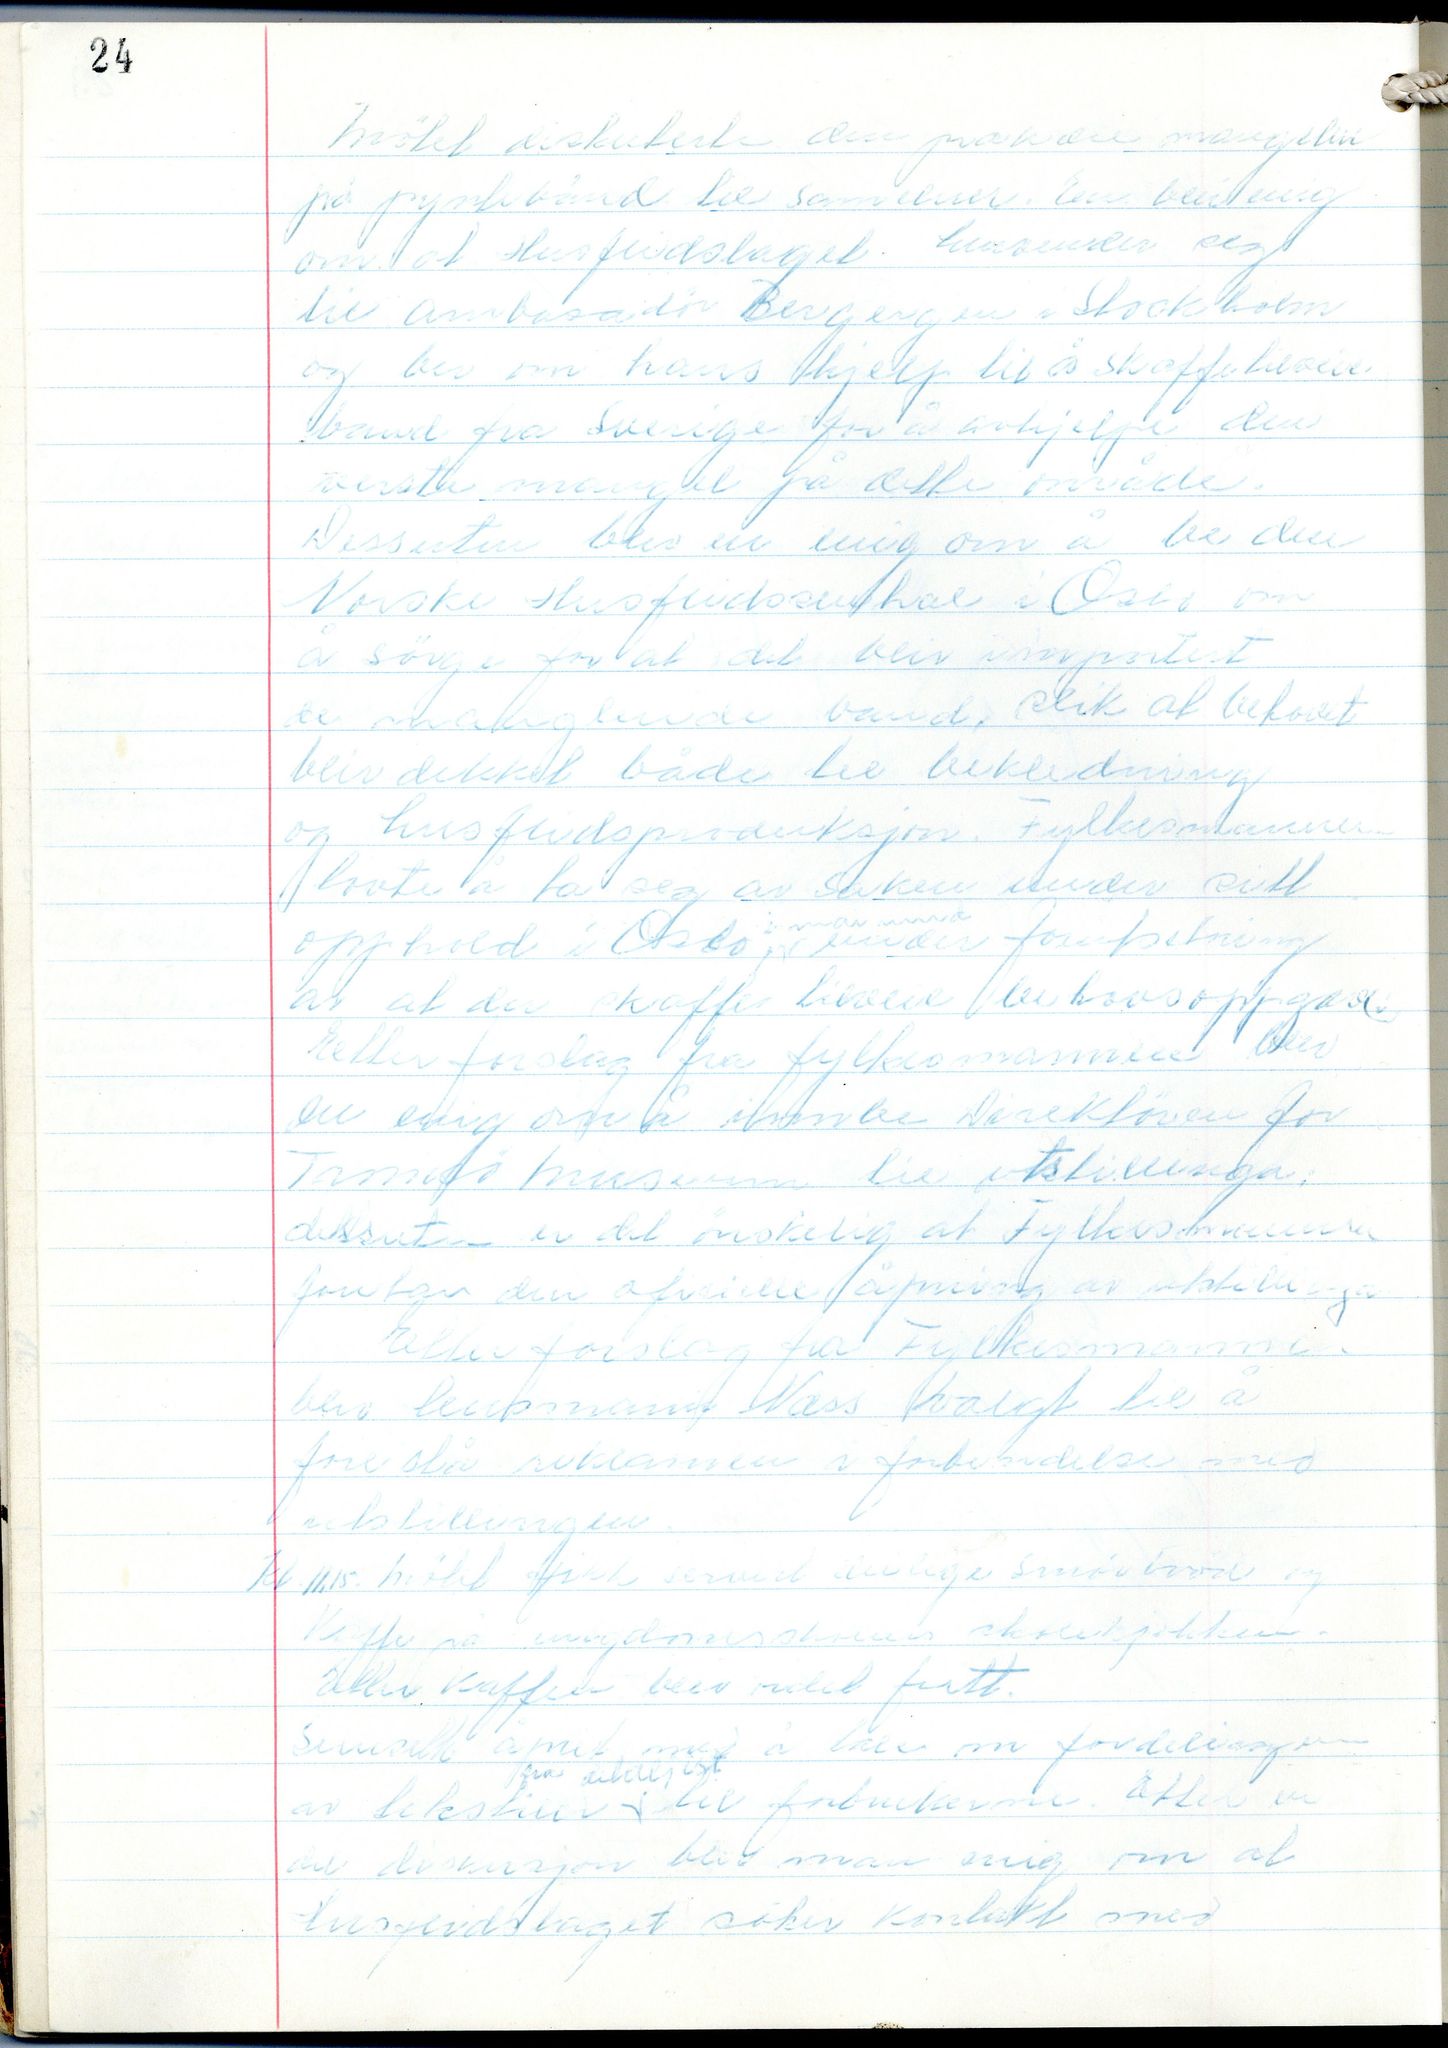 24
Mötet diskuterte den prekære mangelen
på pyntebånd til sameluer. En blei enig
om at Husflidslaget henvender seg
til ambasadör Bergersen i Stockholm
og ber om hans hjelp til å skaffe tilveie
band fra Sverige for å avhjelpe den
verste mangel på dette område.
Dessuten blev en enig om å be den
Norske Husflidssentral i Oslo om
å sörge for at det blir importert
de manglende band, slik at behovet
blir dekket både til bekledning
og husflidsproduksjon. Fylkesmannen
lovte å ta seg av saken under sitt
opphold i Oslo i mai mnd under forutsetning
av at den skaffer tilveie behovsoppgave
Etter forslag fra fylkesmannen blev
en enig om å innbe Direktören for
Tromsö Museum til utstillinga,
dessuten er det önskelig at Fylkesmannen
foretar den ofisielle åpning av utstillinga
Etter forslag fra Fylkesmannen
blev lensmann Næss valgt til å
foreslå reklamen i forbindelse med
utstillingen.
Kl. 11.15. Mötet fikk servert deilige smörbröd og
Kaffe på ungdomsskolens skolekjökken.
Etter kaffen blev rådet fritt.
åpnet med å tale om fordelingen
av tekstiler fra til forbrukerne. Etter en
del diskusjon blev man enig om at
Husflidslaget söker kontakt med